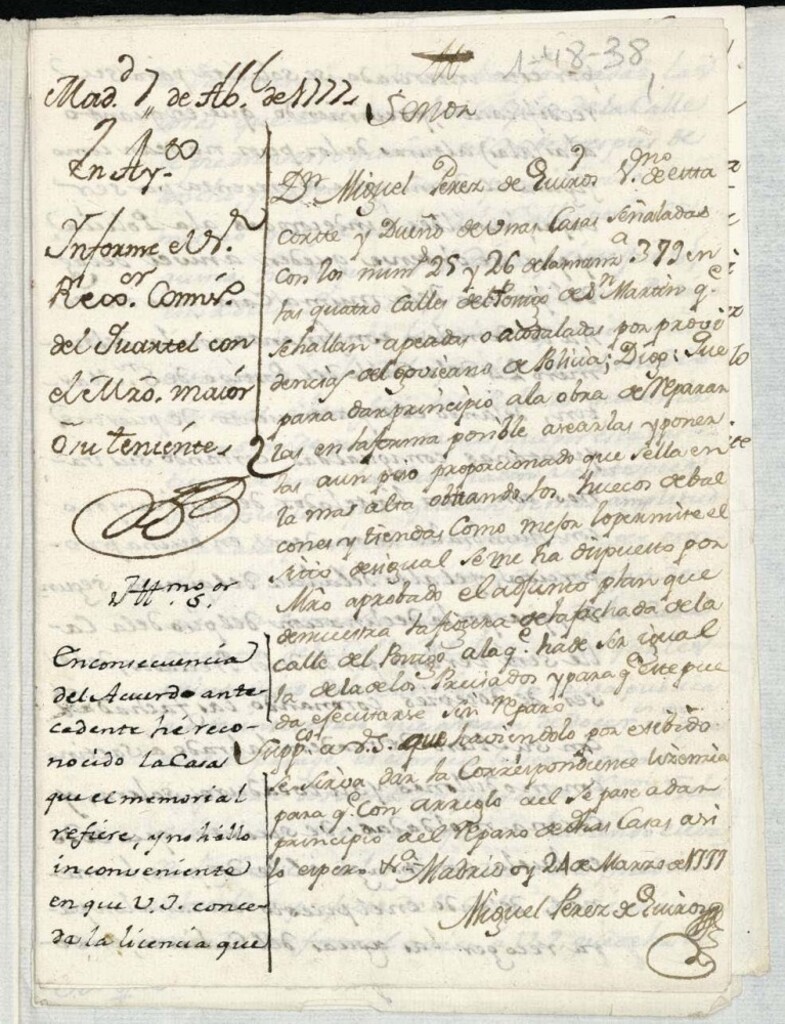 1-48-38
1
Mad.d 7,, de Ab.l de 1777,
Señor
En Ay.to
Informe el S.r
Rexo.r Comis.o
del Quartel con
el Mro. maior
ó su teniente,
Yll.mo S.or
En consecuencia
del Acuerdo ante-
cedente hé reco-
nocido la Casa
que el memorial
refiere, y no hállo
inconveniente
en que V.I. conce-
da la licencia que
D.n Miguel Perez de Quiros V.no de esta
Corte y Dueño de unas Casas señaladas
con los num.s 25 y 26 de la manz.a 379 en
las quatro Calles del Postigo de S.n Martin q.e
se hallan apeadas o acodaladas por provi
dencias del govierno de Policia; Dize; Que
para dar principio a la obra de reparar
las en la forma posible asearlas y poner
las a un piso proporcionado que sella en
la mas alta obrando los huecos de bal
cones y tiendas como mejor lo permite el
sitio desigual se me ha dispuesto por
Mro aprobado el adjunto plan que
demuestra la figura de la fachada de la
calle del Postigo a la q.e ha de ser igual
la de la de los Preciados y para q.e este pue
da efecutarse sin reparo
Supp.co a V.S. que haviendolo por exibido
se sirva dar la correspondiente lizemcia
para q.e con arreglo a el se pase a dar
principio a el reparo de dhas Casas asi
lo espero &.a Madrid oy 24 de Marzo de 1777
Miguel Perez de Quiros